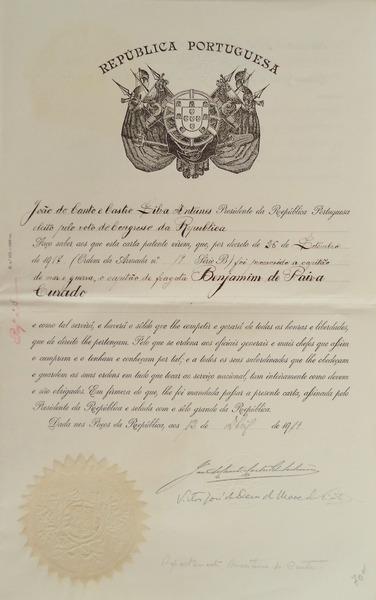 REPÚBLICA PORTUGUESA
João do Canto e Castro Silva Antunes Presidente da República Portuguesa
eleito pelo voto do Congresso da Republica
Faço saber aos que esta carta patente virem, que, por decreto de 26 de Setembro
de 1918 (Ordem da Armada nº 19 Série B) foi promovido a capitão
de mar e guerra, o capitão de fragata Benjamim de Paiva
Curado
e como tal servirá, e haverá o sôldo que lhe competir e gozará de todas as honras e liberdades,
que de direito lhe pertençam. Pelo que se ordena aos oficiais generais e mais chefes que assim
o cumpram e o tenham e conheçam por tal; e a todos os seus subordinados que lhe obedeçam
e guardem as suas ordens em tudo que tocar ao serviço nacional, tam inteiramente como devem
e são obrigados. Em firmeza do que, lhe foi mandada passar a presente carta, assinada pelo
Presidente da República e selada com o sêlo grande da República.
Dada nos Paços da República, aos 12 de Abril de 1919